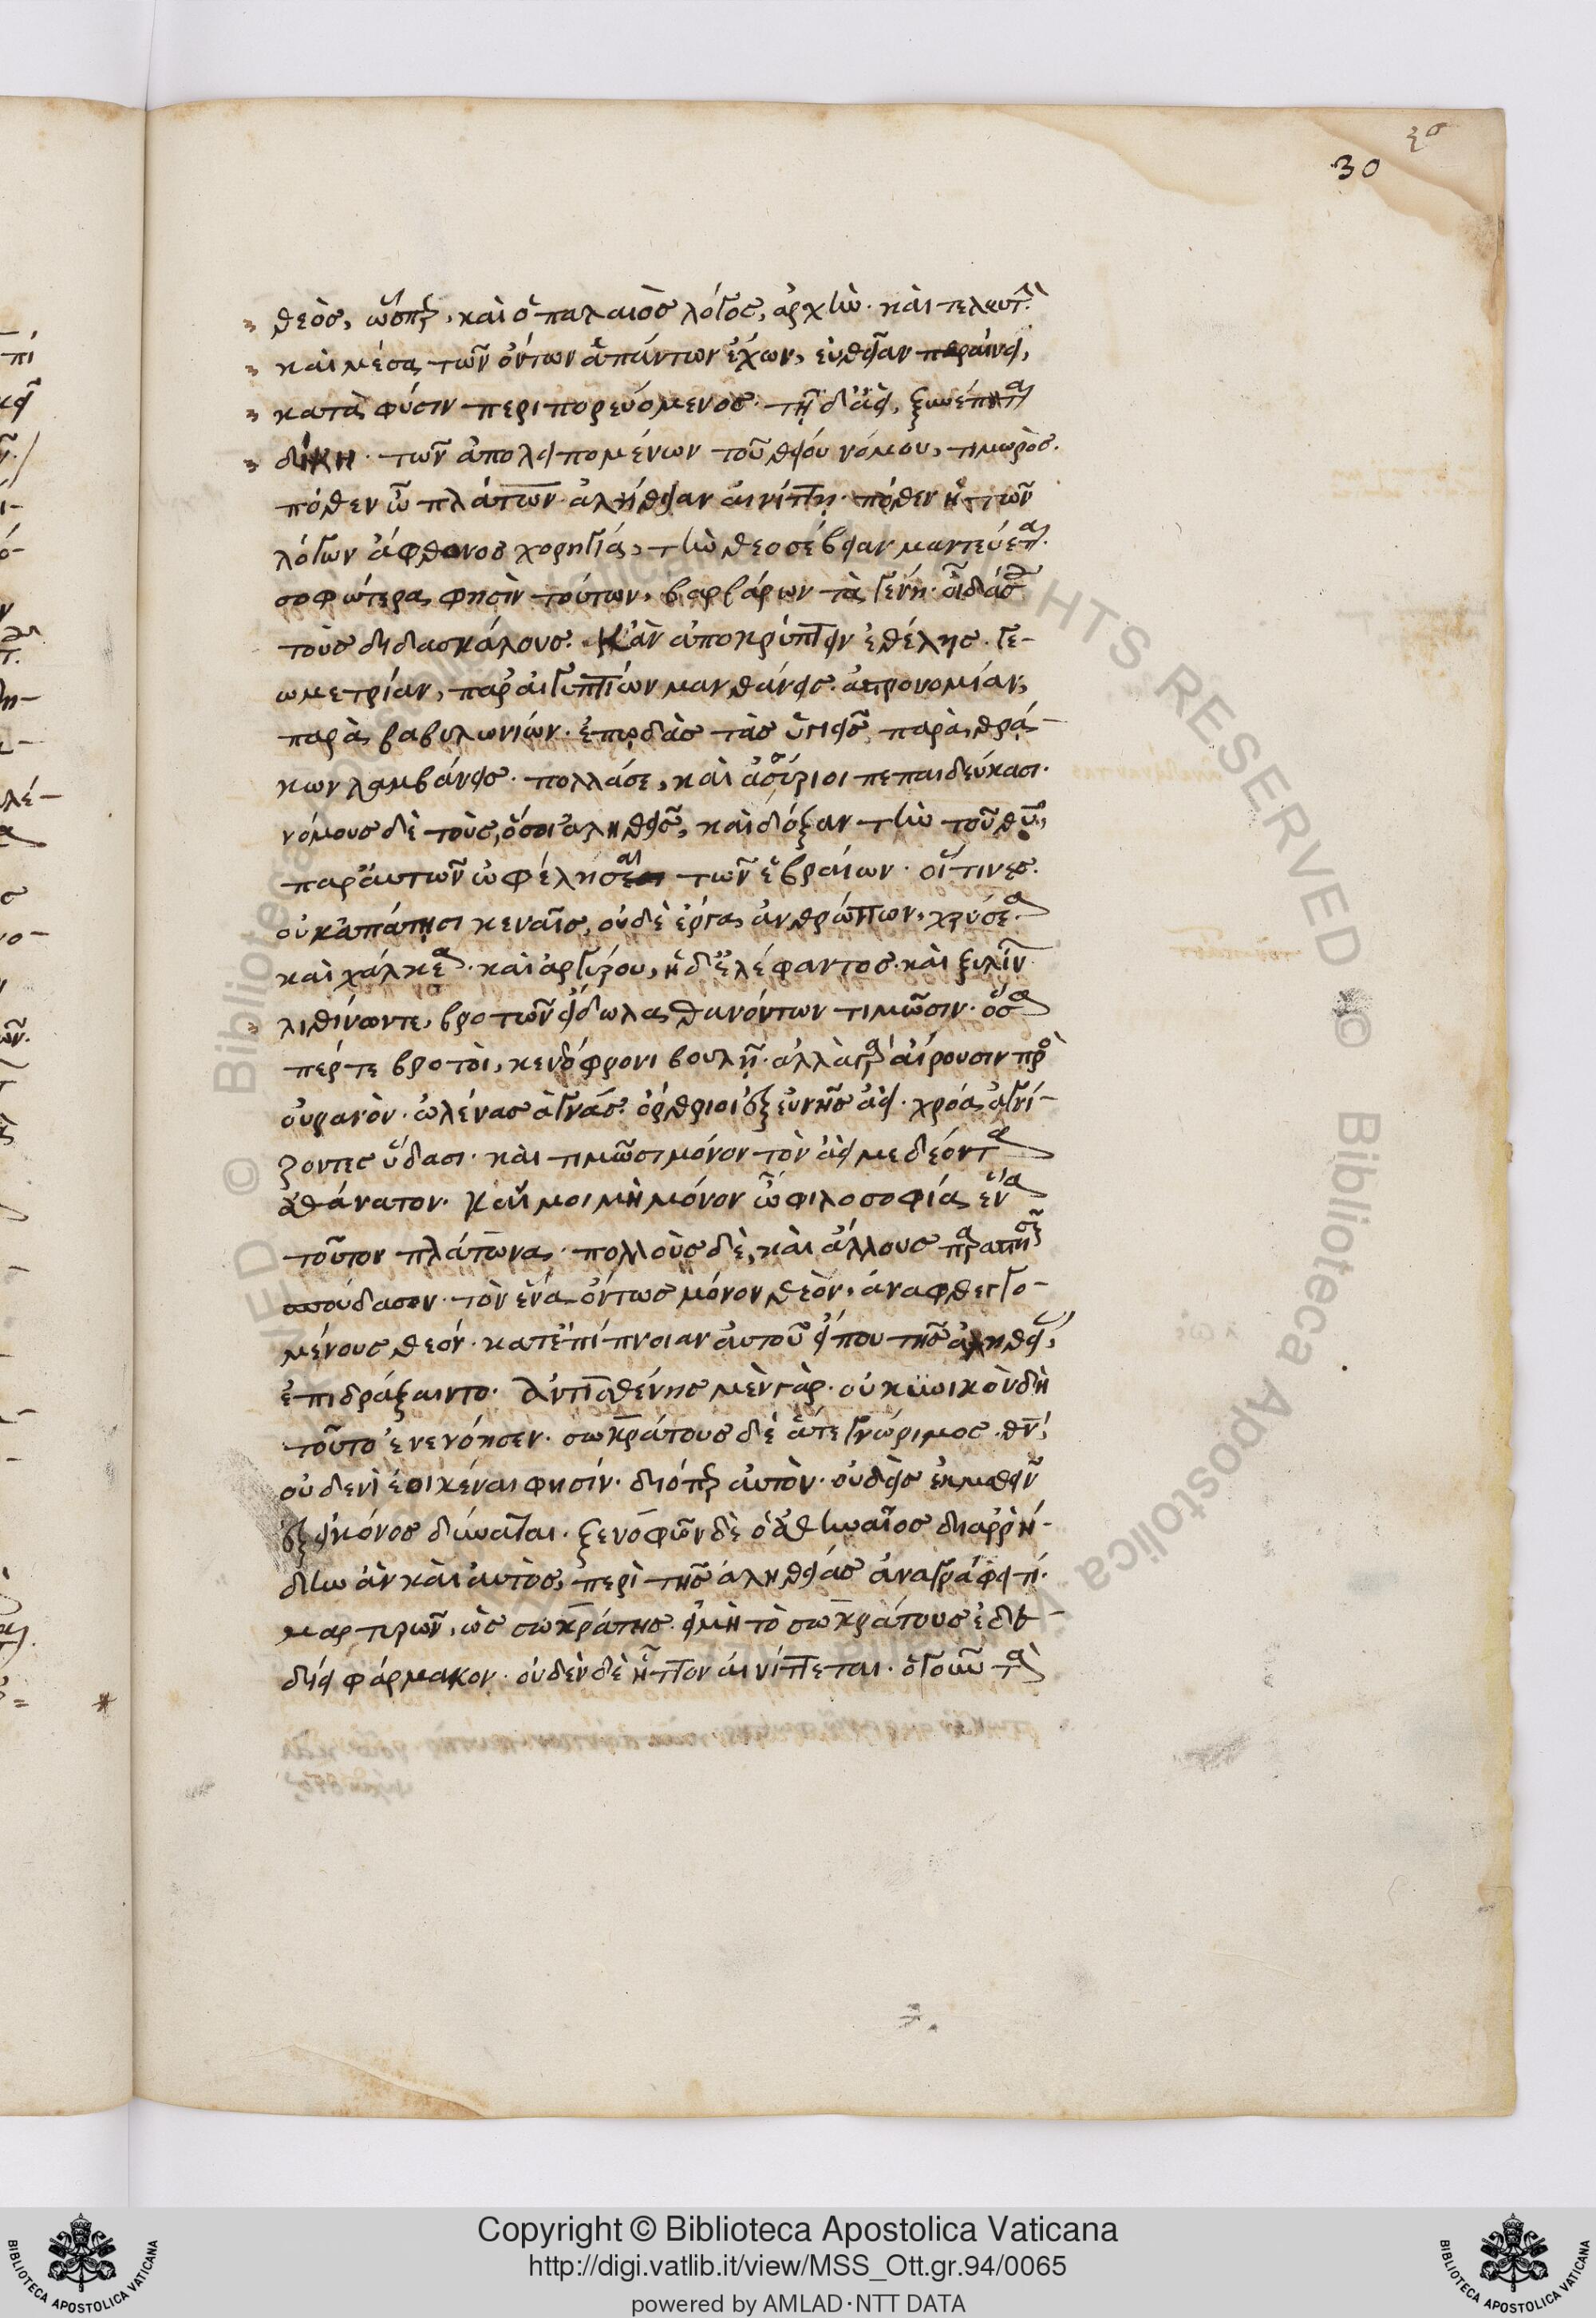 ξσ
30
θεὸς, ὥσπερ, καὶ ὁ παλαιὸς λόγος, ἀρχὴν· καὶ τελευτὴν
καὶ μέσα τῶν ὄντων ἁπάντων ἔχων, εὐθεῖαν περαίνει,
κατὰ φύσιν περιπορευόμενος· τῇ δ' ἀεὶ, ξυνέπεται
δίκη· τῶν ἀπολειπομένων τοῦ θείου νόμου, τιμωρός.
πόθεν ὦ πλάτων ἀλήθειαν αἰνίττη· πόθεν ἡ τῶν
λόγων ἄφθονος χορηγία, τὴν θεοσέβειαν μαντεύεται.
σοφώτερα, φησὶν τούτων, βαρβάρων τὰ γένη· οἶδά σου
τοὺς διδασκάλους. κἂν ἀποκρύπτειν ἐθέλης· γε-
ωμετρίαν, παρ' αἰγυπτίων μανθάνεις· ἀστρονομίαν,
παρὰ βαβυλωνίων· ἐπῳδὰς τὰς ὑγιεῖς παρὰ θρα-
κων λαμβάνεις· πολλά σε, καὶ ἀσσύριοι πεπαιδεύκασι·
νόμους δὲ τοὺς, ὅσοι ἀληθεῖς, καὶ δόξαν τὴν τοῦ θυ,
παρ' αυτῶν ὠφέλησαι τῶν ἑβραίων· οἵτινες.
οὐκ ἀπάτησι κεναῖς, οὐδὲ ἔργα ἀνθρώπων, χρύσεα
καὶ χάλκεα· καὶ ἀργύρου, ἠδ' ἐλέφαντος· καὶ ξυλίνων
λιθίνωντε, βροτῶν εἴδωλα θανόντων τιμῶσιν· ὅσα
πέρτε βροτοὶ, κενόφρονι βουλῇ· ἀλλὰ γὰρ αἴρουσιν πρὸς
οὐρανὸν· ὠλένας ἁγνάς· ὄρθριοι ἐξ εὐνῆς ἀεὶ· χρόα ἁγνί-
ζοντες ὕδασι· καὶ τιμῶσι μόνον τὸν ἀεὶ μεδέοντα
ἀθάνατον. καί μοι μὴ μόνον ὦ φιλοσοφία ἕνα
τοῦτον πλάτωνα, πολλοὺς δὲ, καὶ ἄλλους παραστῆσαι
σπούδασον· τὸν ἕνα ὄντως μόνον θεὸν, ἀναφθεγγο-
μένους θεόν· κατ' ἐπίπνοιαν αὐτοῦ εἴ που τῆς ἀληθείας,
ἐπιδράξαιντο. Ἀντισθένης μὲν γὰρ· οὐ κυνικὸν δὴ
τοῦτο ἐνενόησεν· σωκράτους δὲ ἅτε γνώριμος. θν,
οὐδενὶ ἐοικέναι φησίν· διόπερ αὐτὸν· οὐδεὶς ἐκμαθεῖν
ἐξ εἰκόνος δύναται. ξενοφῶν δὲ ὁ ἀθηναῖος διαρρή-
δην ἂν καὶ αὐτὸς, περὶ τῆς ἀληθείας ἀναγράφει τί·
μαρτυρῶν, ὡς σωκράτης· εἰ μὴ τὸ σωκράτους ἐδε-
δίει φάρμακον· οὐδὲν δὲ ἧττον αἰνίττεται. ὁ γοῦν τὰ